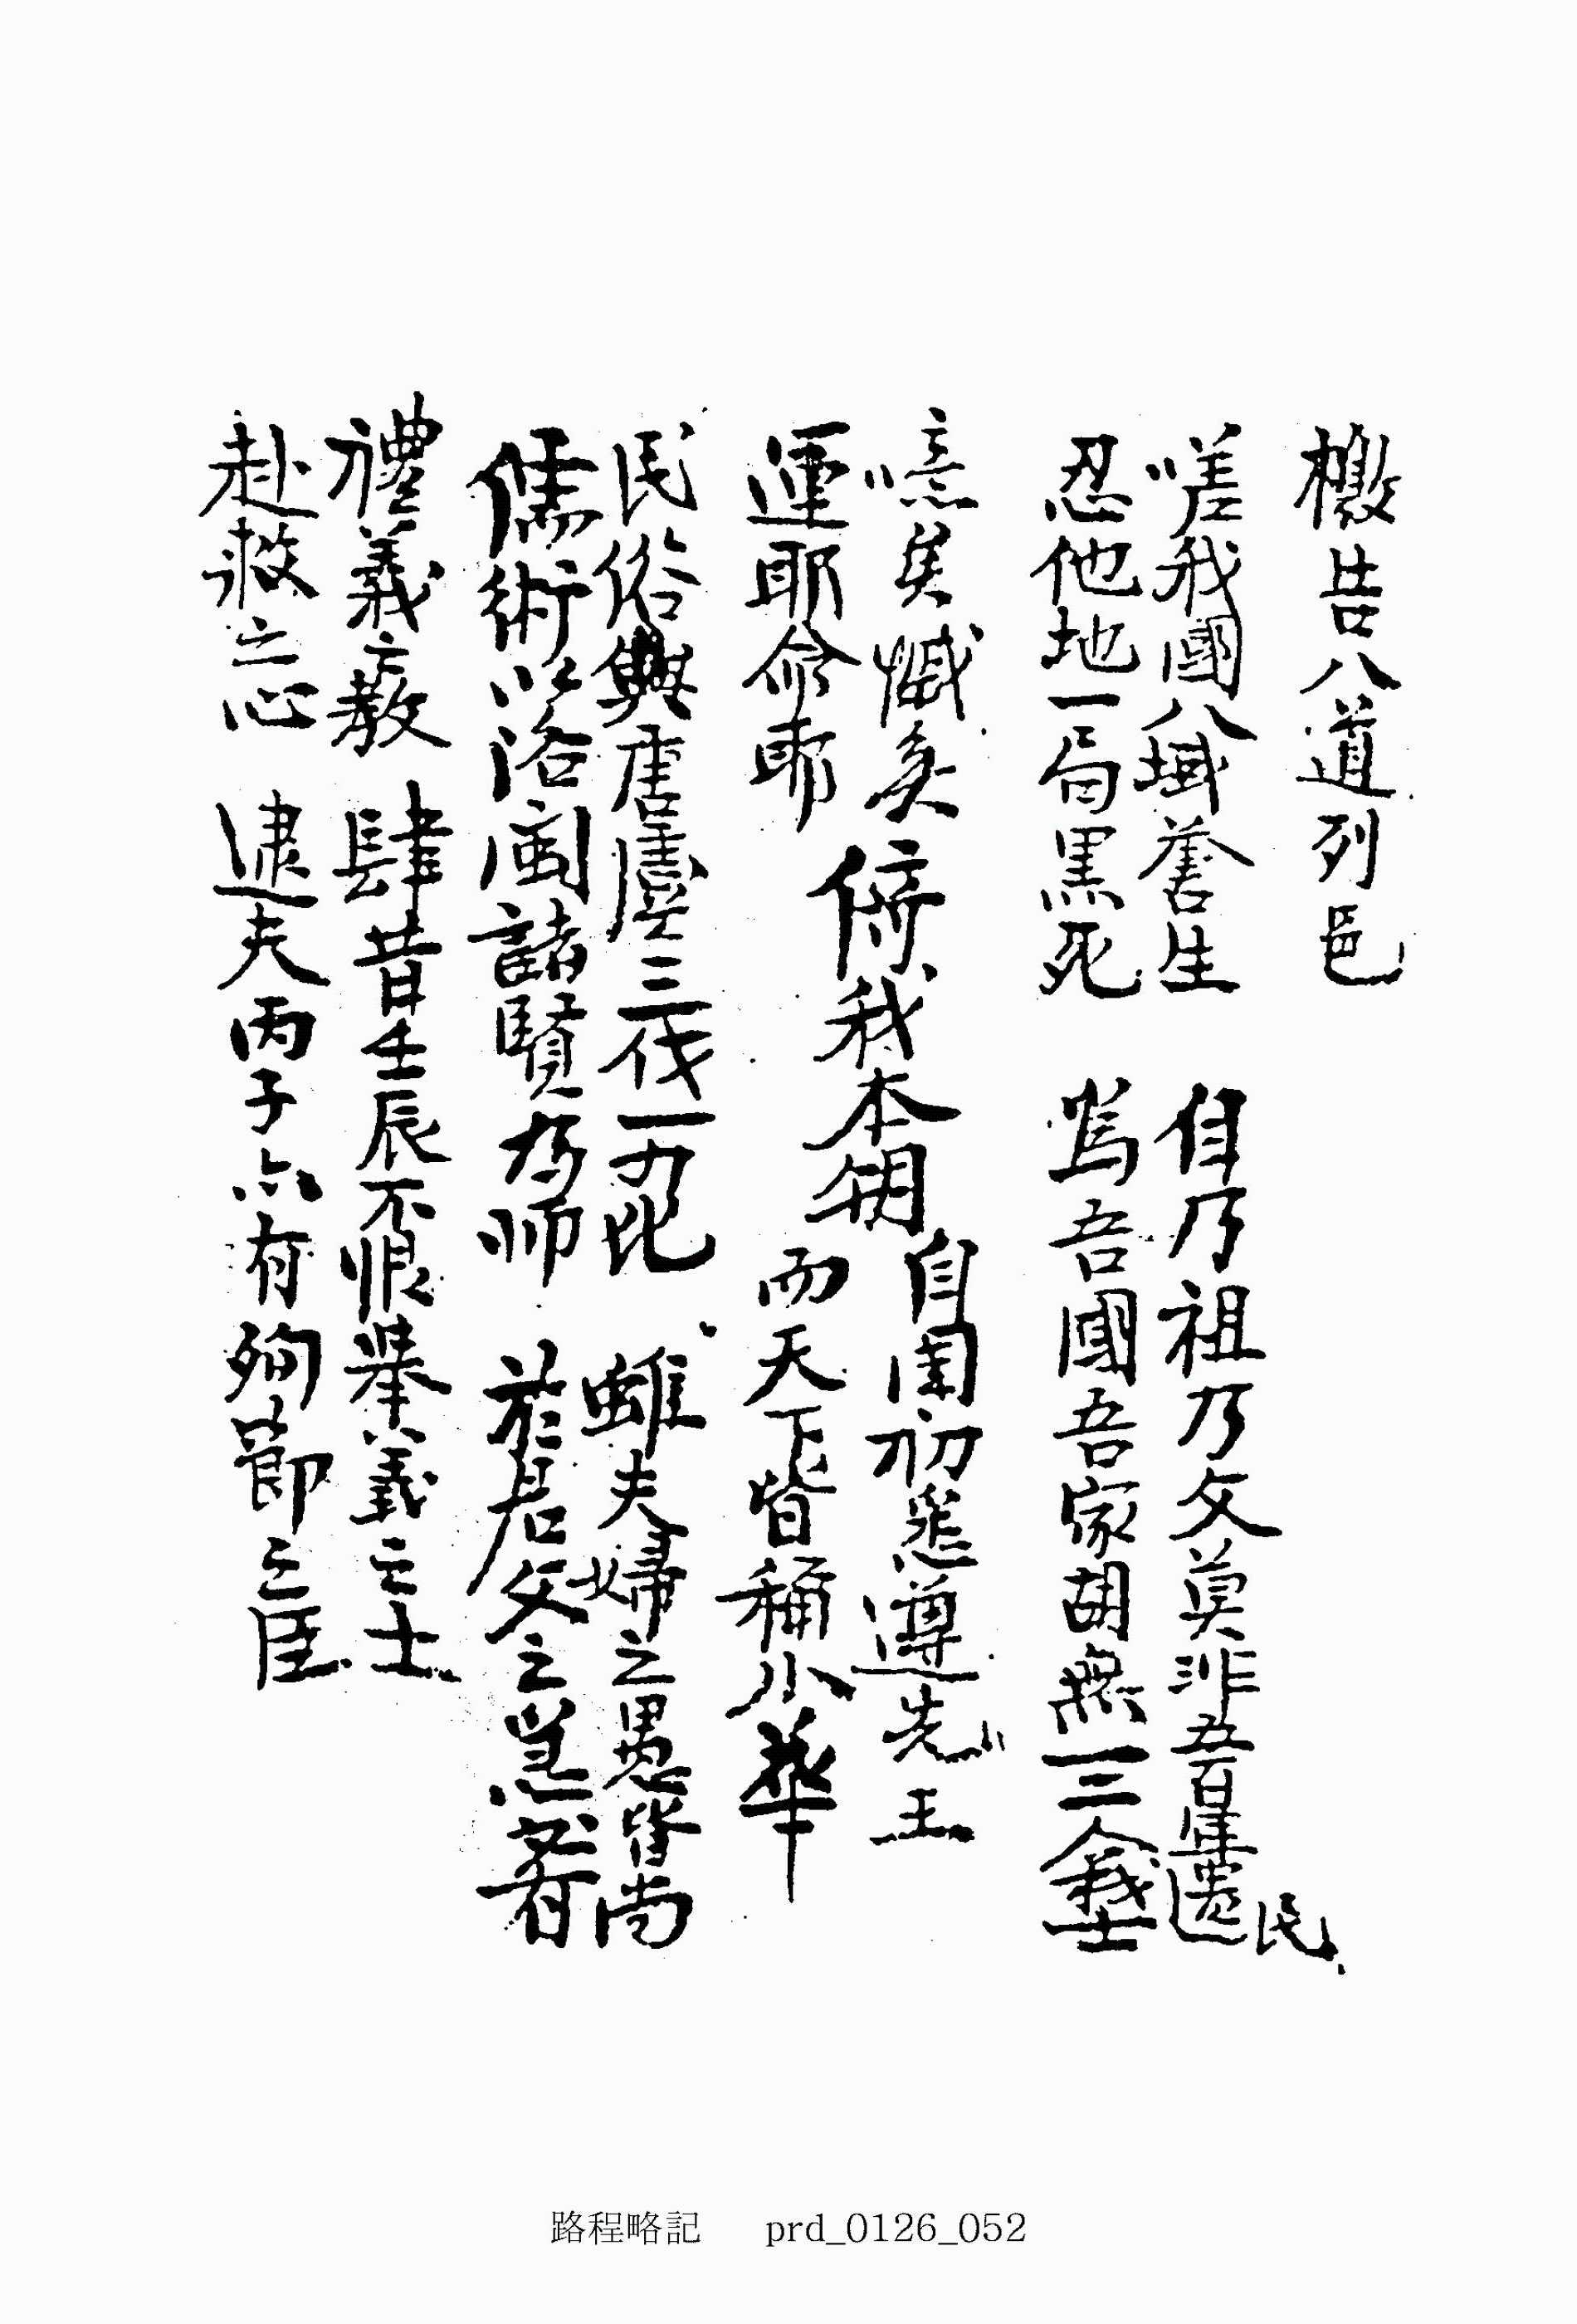 檄告八道列邑
嗟我國八域蒼生 自乃祖乃父莫非五百年遺民
忍他地一局黑死 爲吾國吾家胡無一二人義士
噫矣憾矣
運耶命耶
我本朝
自国初悉遵先王
而天下皆稱小華
民俗與唐虞三代一方比 雖夫婦之愚皆尚
儒術以洛閩諸賢为师 於君父之急必有
禮義之教 肆昔壬辰不恨擧義之士
赴救之心 逮夫丙子亦有殉節之臣
路程略記 prd_0126_052